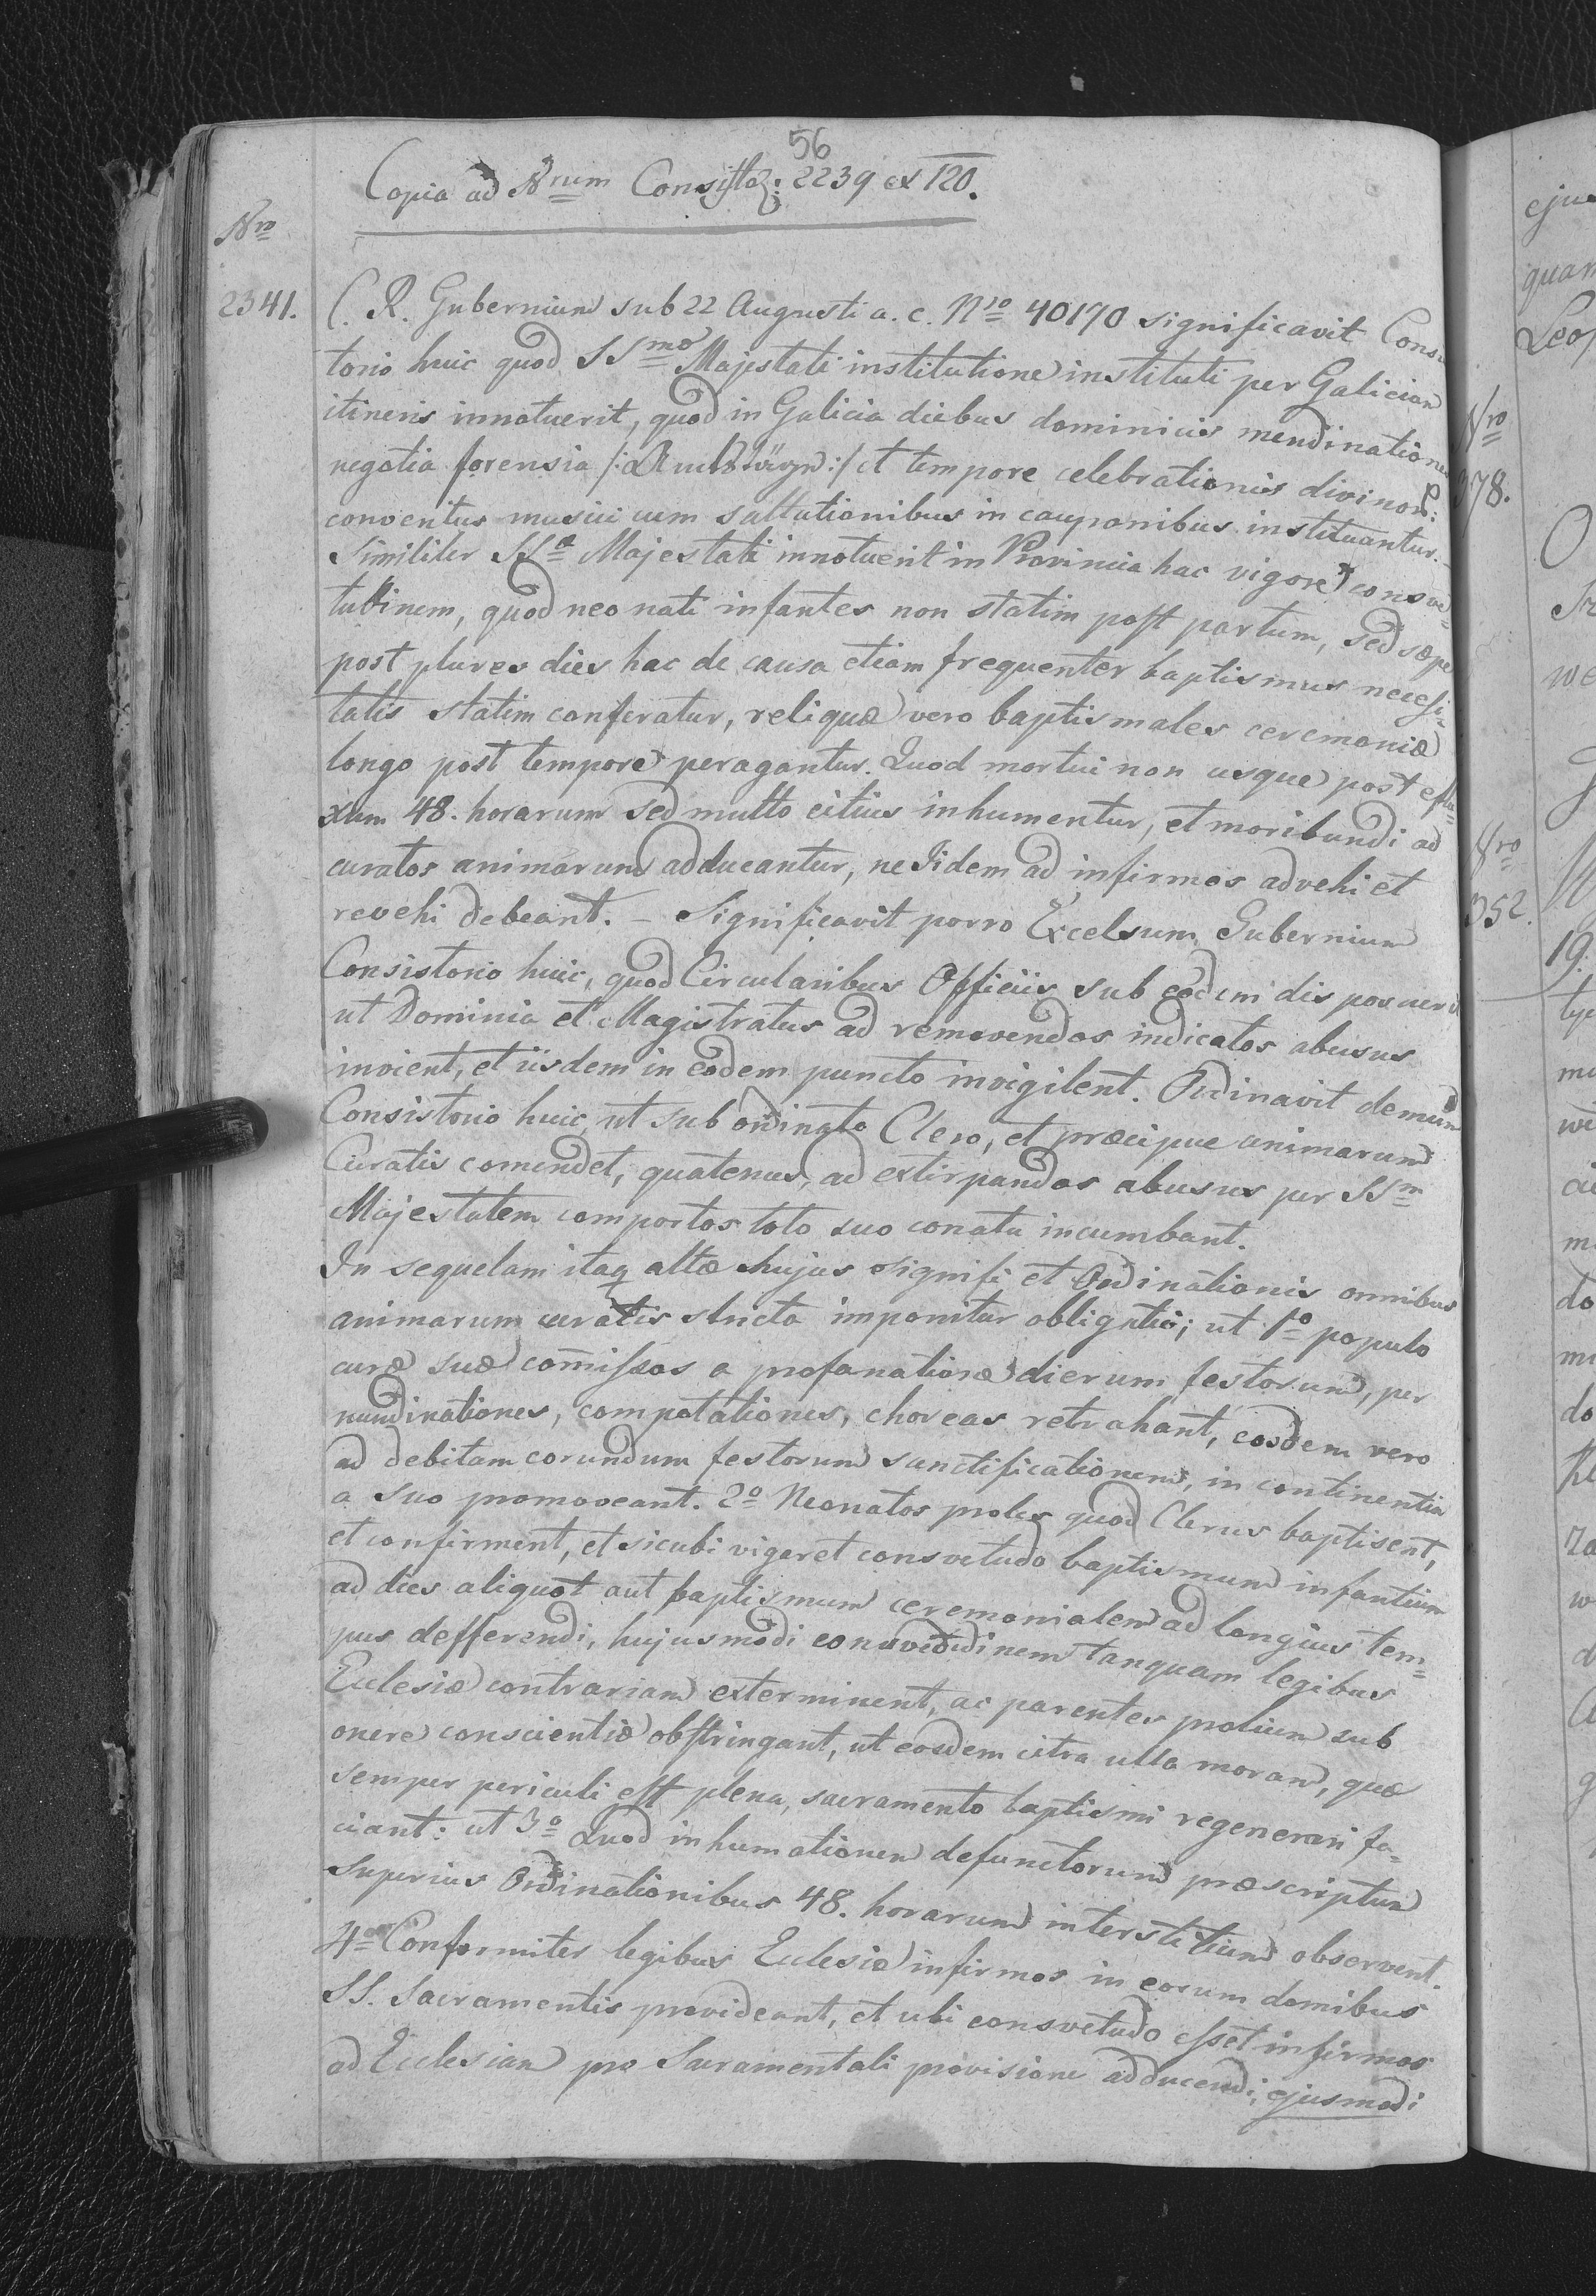 56
Copia ad Nrum Consistor: 2239 ex 120.
Nro
2341.
C. R. Gubernium sub 22 Augusti a. c. Nro 40170 significavit Consis
torio huic quod SSmo Majestati institutione instituti per Galiciam
itineris innotuerit, quod in Galicia diebus dominicis mendinationes
negotia forensia /: :/ et tempore celebrationis divinor:
conventus musici cum saltationibus in cauponibus instituantur.
Similiter SSa Majestati innotuerit in Provincia hac vigore consve=
tudinem, quod neo nati infantes non statim post partum, sed sæpe
post plures dies hac de causa etiam frequenter baptismus necessi=
tatis statim conferatur, reliquæ vero baptismales ceremoniæ
longo post tempore peragantur. Quod mortui non usque post eflu=
xum 48. horarum sed multo citius inhumentur, et moribundi ad
curatos animarum adducantur, ne Iidem ad infirmos advehi et
revehi debeant. – Significavit porro Excelsum Gubernium
Consistorio huic, quod Circularibus Officiis sub eodem disposuerit
ut Dominia et Magistratus ad removendos indicatos abusus
invient, et iisdem in eodem puncto invigilent. Ordinavit demum
Consistorio huic, ut subordinato Clero, et præcipue animarum
Curatis comendet, quatenus, ad extirpandos abusus per SSm
Majestatem compertos toto suo conatu incumbant.
In sequelam itaq altæ hujus signifi et Ordinationis omnibus
animarum curatis stricta imponitur obligatio; ut 1o populo
curæ suæ com̄issos a profanatione dierum festorum, per
nundinationes, compotationes, choreas retrahant, eosdem vero
ad debitam eorundum festorum sanctificationem, in continentia
a suo promoveant. 2o Neonatos proles quod Clerus baptisent,
et confirment, et sicubi vigeret consvetudo baptismum infantium
ad dies aliquot aut baptismum ceremonialem ad longius tem=
pus defferendi, hujusmodi consvetudinem tanquam legibus
Ecclesiæ contrariam exterminent, ac parentes prolium sub
onere conscientiæ obstringant, ut eosdem citra ulla moram, quæ
semper periculi est plena, sacramento baptismi regenerari fa=
ciant: ut 3o Quod inhumationem defunctorum præscriptum
superius Ordinationibus 48. horarum interstitium observent.
4o Conformiter legibus Ecclesiæ infirmos in eorum domibus
SS. Sacramentis provideant, et ubi consvetudo esset infirmos
ad Ecclesiam pro Sacramentali provisione adducendi, ejusmodi
Nro
378.
Nro
352.
19.